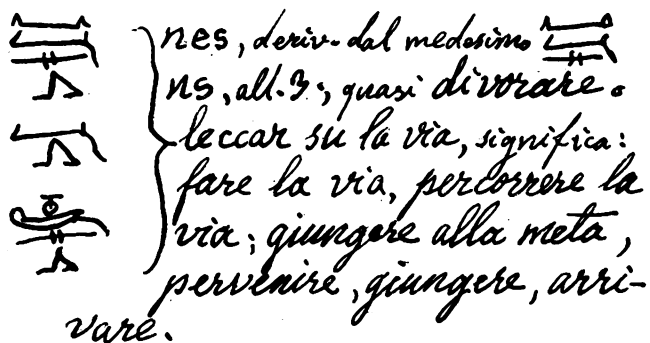 nes, deriv. dal medesimo
ns, all. 3; quasi divorare.
leccar su la via, significa:
fare la via, percorrere la
via; giungere alla meta,
pervenire, giungere, arri-
vare.